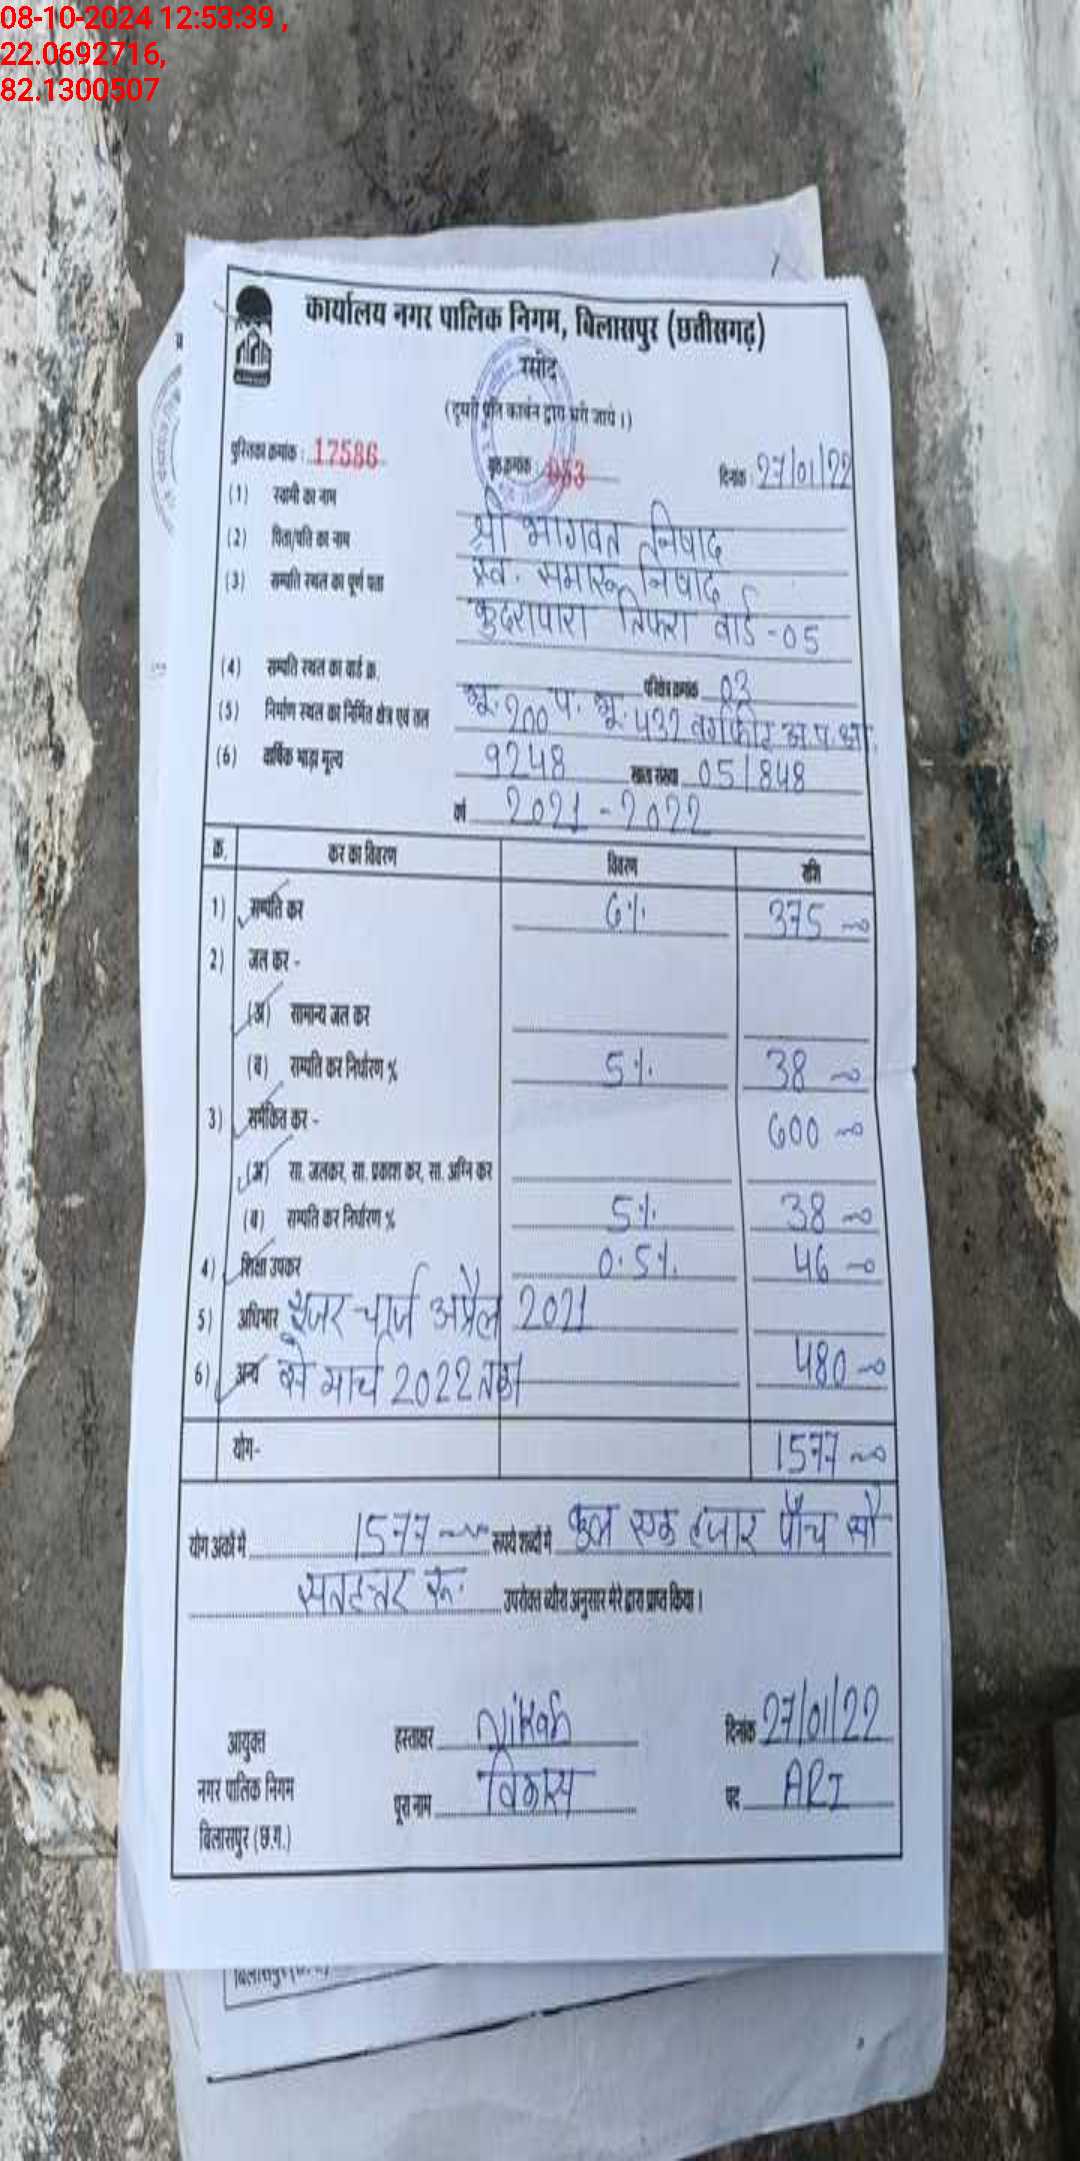 08-10-2024 12:53:39 ,
22.0692716,
82.1300507
कार्यालय नगर पालिक निगम, बिलासपुर (छत्तीसगढ़)
रसीद
(दूसरी प्रति कार्बन द्वारा भरी जाये।)
पुस्तिका क्रमांक : 17586 पृष्ठ क्रमांक 053 दिनांक : 27/01/22
(1) स्वामी का नाम श्री भागवत निषाद
(2) पिता/पति का नाम स्व. समारू निषाद
(3) सम्पति स्थल का पूर्ण पता कुदरापारा तिफरा वार्ड -05
(4) सम्पति स्थल का वार्ड क्र. परिक्षेत्र क्रमांक 03
(5) निर्माण स्थल का निर्मित क्षेत्र एवं तल भू. 200 प. भू. 432 वर्गफीट
(6) वार्षिक भाड़ा मूल्य 9248 खाता संख्या 05/848
वर्ष 2021 - 2022
क्र. कर का विवरण विवरण राशि
1) सम्पति कर 6% 375
2) जल कर -
(अ) सामान्य जल कर
(ब) सम्पति कर निर्धारण % 5% 38
3) समेकित कर - 600
(अ) सा. जलकर, सा. प्रकाश कर, सा. अग्नि कर
(ब) सम्पति कर निर्धारण % 5% 38
4) शिक्षा उपकर 0.5% 46
5) अधिभार यूजर चार्ज अप्रैल 2021
6) अन्य से मार्च 2022 तक 480
योग- 1577
योग अंकों में 1577 रूपये शब्दों में कुल एक हजार पाँच सौ
सतहत्तर रू. उपरोक्त ब्यौरा अनुसार मेरे द्वारा प्राप्त किया।
आयुक्त हस्ताक्षर Vikash दिनांक 27/01/22
नगर पालिक निगम पूरा नाम विकास पद ARI
बिलासपुर (छ.ग.)